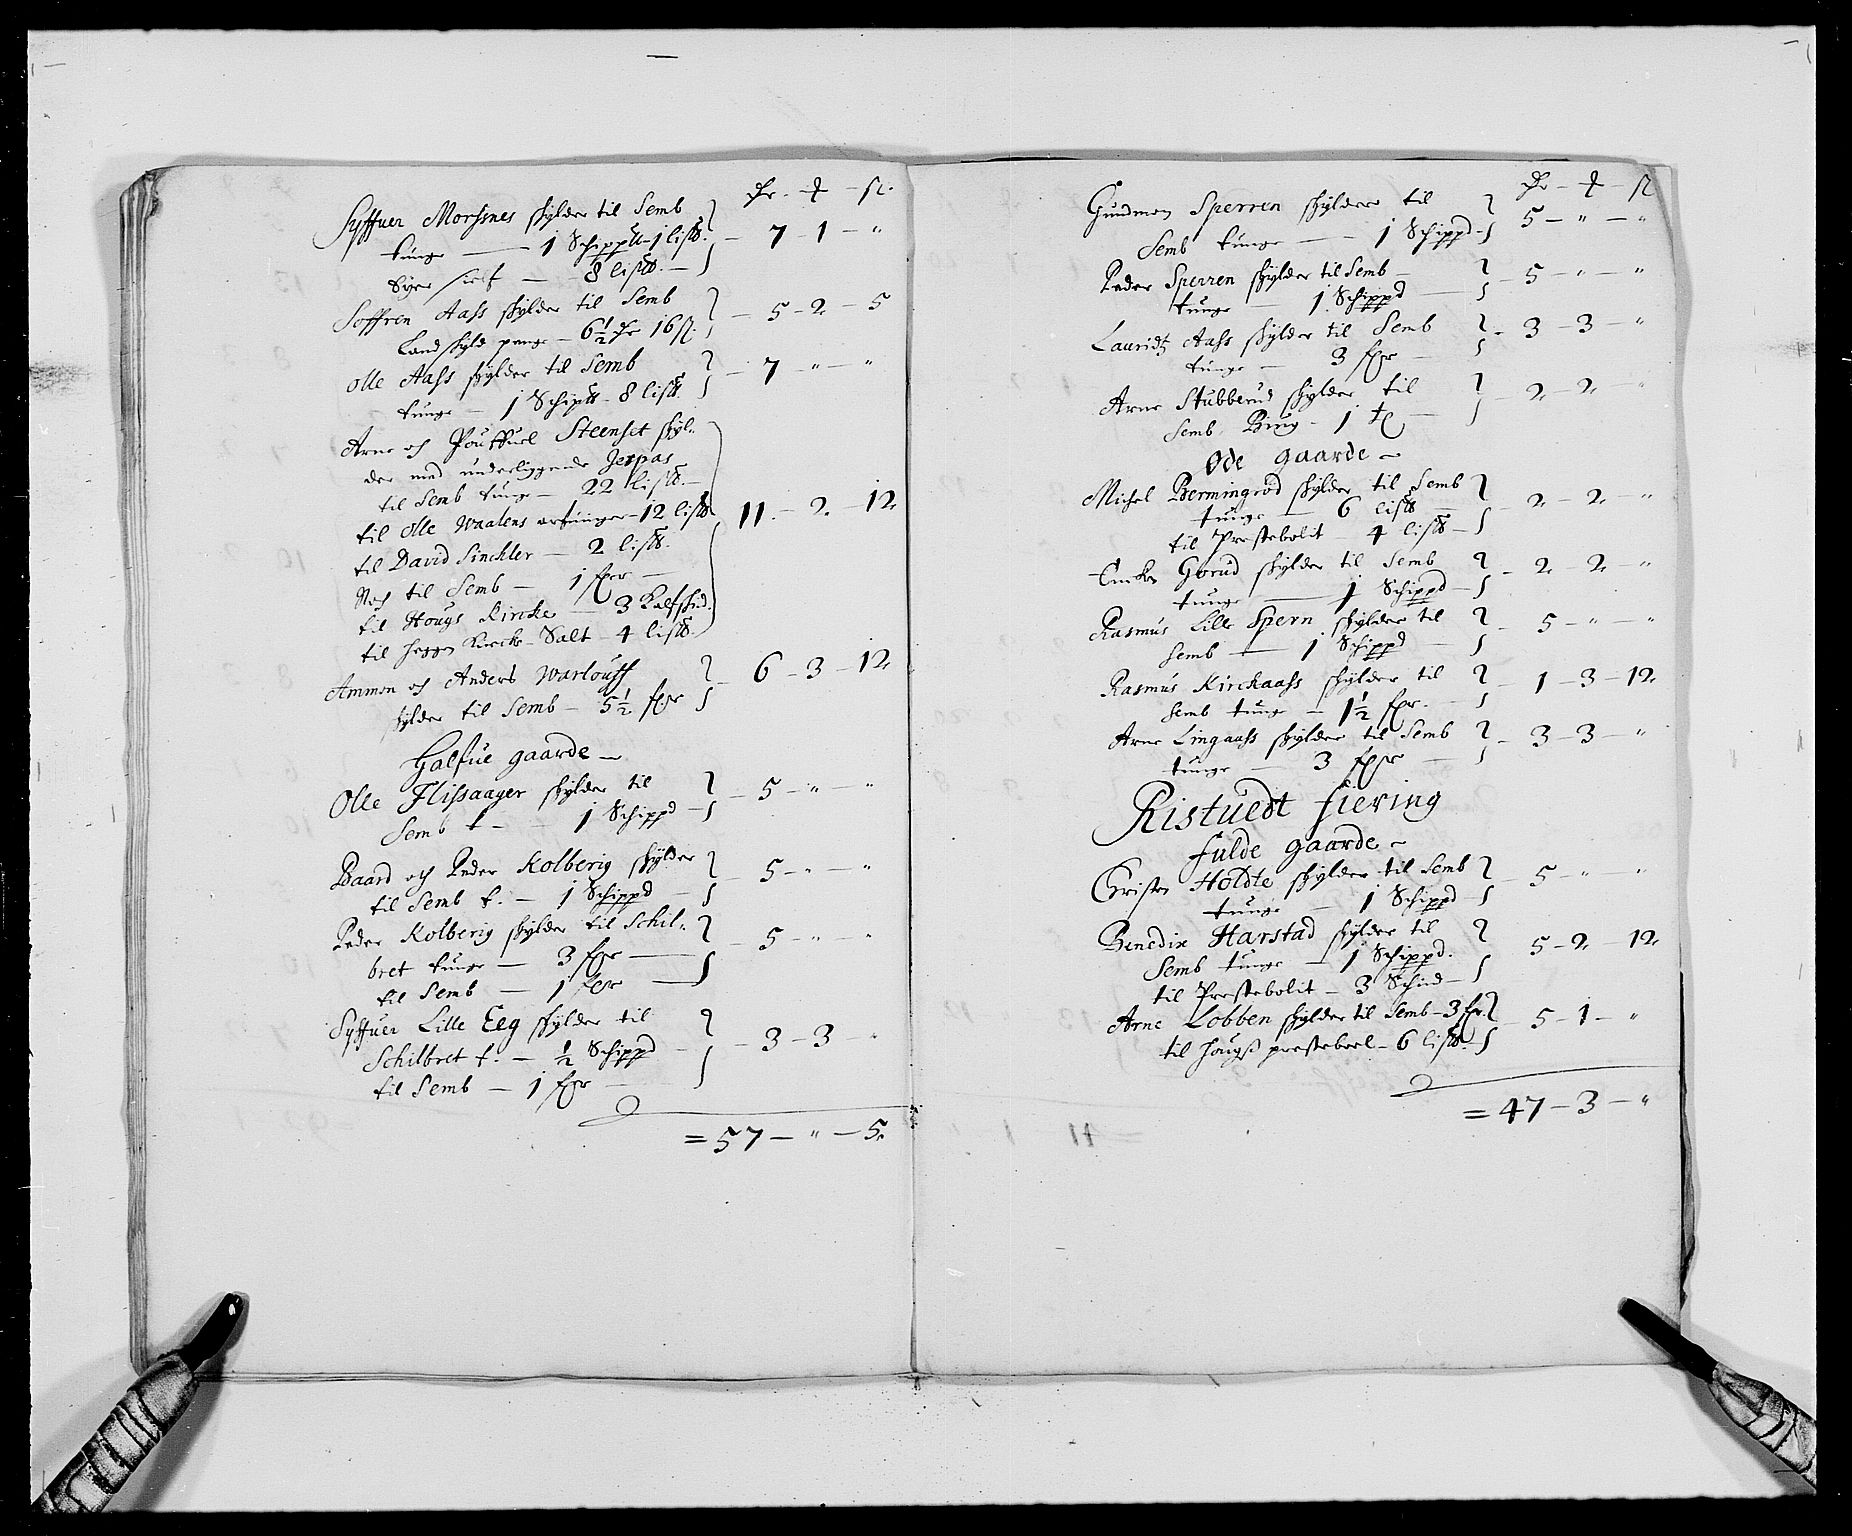 dr. - ₰ - ſl.
Syffuer Morhsnes skylder til Semb
tunge — 1 Schipp℔ - 1 lis℔. - 7 - 1 - "
Byer self — 8 lis℔.
Soffren Aahs skylder til Semb
Landskyld penge - 6½ dr 16 ſl. - 5 - 2 - 5
Olle Aahs skylder til Semb
tunge — 1 Schip℔ - 8 lis℔. - 7 - " - "
Arne och Pouffuel Steenset skyl-
der med underliggende Jerpas
til Semb tunge — 22 lis℔ —
til Olle Waalens arfuinger - 12 lis℔ 11. - 2 - 12
til David Sinckler — 2 lis℔.
Noch til Semb — 1 fxr —
til Hougs Kircke — 3 Kalfskind.
til Heggen Kircke - Salt - 4 lis℔.
Ammon och Anders Warlouff
skylder til Semb - 5½ fxr - 6 - 3 - 12
Halfue gaarde —
Olle Flissaager skylder til
Semb t. - 1 Schippd - 5 - " - "
Baard och Peder Kolberig skylder
til Semb t. — 1 Schippd - 5 - " - "
Peder Kolberig skylder til Schil-
bret tunge — 3 fxr — 5 - " - "
til Semb — 1 fxr
Syffuer Lille Eeg skylder til
Schilbret t. — ½ Schippd - 3 - 3 - "
til Semb — 1 fxr
= 57 - " - 5.
dr - ₰ - ſl
Gundmon Sperren skylder til
Semb tunge — 1 Schippd - 5 - " - "
Peder Sperren skylder til Semb -
tunge — 1 Schippd - 5 - " - "
Lauridtz Aahs skylder til Semb
tunge — 3 fxr - 3 - 3 - "
Arne Stubberud skylder til
Semb, Biug - 1 - 2 - 2 - "
Øde gaarde —
Michel Bermingrod skylder til Semb
tunge — 6 lis℔ - 2 - 2 - "
til Prestebolit — 4 lis℔ -
Gorud skylder til Semb
tunge — 1 Schippd - 2 - 2 - "
Rasmus Lille Spern skylder til
Semb — 1 Schippd - 5 - " - "
Rasmus Kirckaahs skylder til
Semb tunge — 1½ fxr. - 1 - 3 - 12
Arne Lingaahs skylder til Semb
tunge — 3 fxr - 3 - 3 - "
Ristuedt fiering
fulde gaarde —
Christen Holdte skylder til Semb
tunge — 1 Schippd - 5 - " - "
Benedix Harstad skylder til
Semb tunge — 1 Schippd. 5 - 2 - 12
til Prestebolit — 3 Schind -
Arne Lobben skylder til Semb - 3 fxr
til Hougs presteboel - 6 lis℔. 5 - 1 - "
= 47 - 3 - "